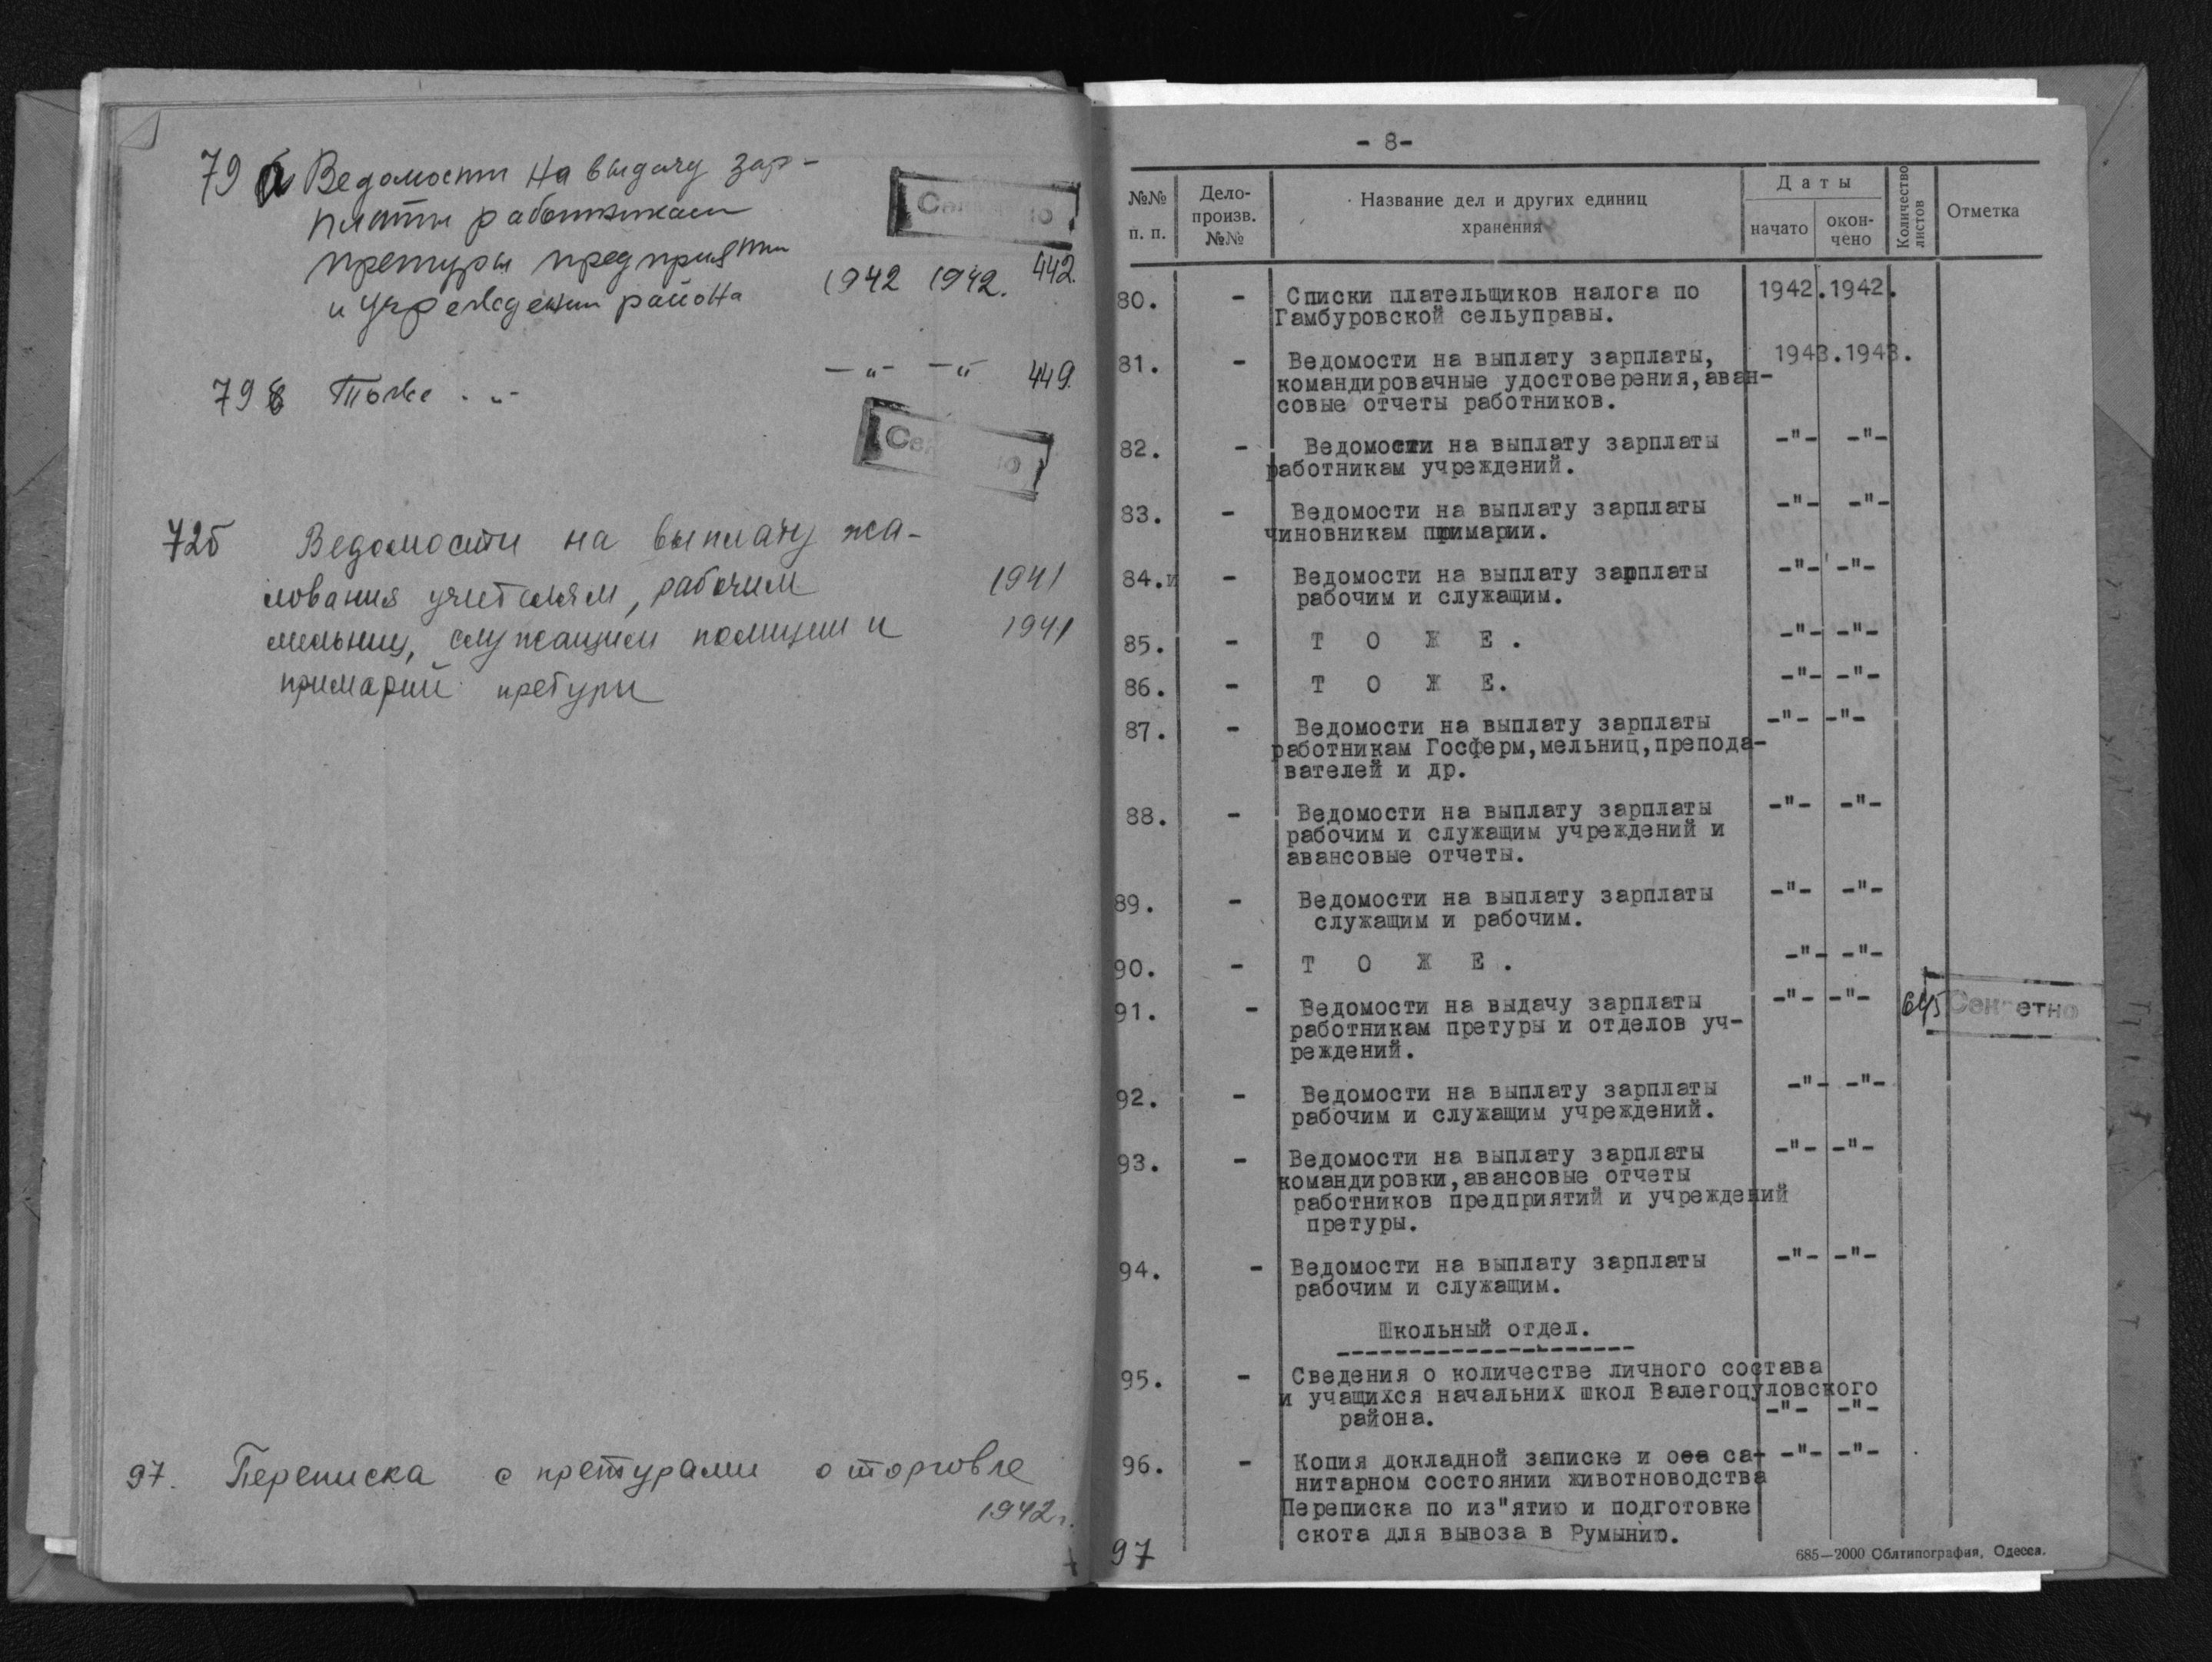 79 а Ведомости на выдачу зар-
платы работникам
претуры предприятий
и учреждений района
1942 1942. 442.
Секретно
79 в То же . -"-
-"- -"- 449.
Сек но
72б Ведомости на выплату жа-
лования учителям, рабочим
1941
мельниц, служащим полиции и
1941
примарий претуры
97. Переписка с претурами о торговле
1942г.
- 8-
№№ п. п.
Дело-произв. №№
Название дел и других единиц хранения
Даты
начато
окон-чено
Количество листов
Отметка
80. - Списки плательщиков налога по 1942.1942.
Гамбуровской сельуправы.
81. - Ведомости на выплату зарплаты, 1943.1943.
командировачные удостоверения,аван-
совые отчеты работников.
82. - Ведомости на выплату зарплаты -"- -"-
работникам учреждений.
83. - Ведомости на выплату зарплаты -"- -"-
чиновникам примарии.
84.и - Ведомости на выплату зарплаты -"- -"-
рабочим и служащим.
85. - Т О Ж Е . -"- -"-
86. - Т О Ж Е. -"- -"-
87. - Ведомости на выплату зарплаты -"- -"-
работникам Госферм,мельниц,препода-
вателей и др.
88. - Ведомости на выплату зарплаты -"- -"-
рабочим и служащим учреждений и
авансовые отчеты.
89. - Ведомости на выплату зарплаты -"- -"-
служащим и рабочим.
90. - Т О Ж Е . -"- -"-
91. - Ведомости на выдачу зарплаты -"- -"- 645 Секретно
работникам претуры и отделов уч-
реждений.
92. - Ведомости на выплату зарплаты -"- -"-
рабочим и служащим учреждений.
93. - Ведомости на выплату зарплаты -"- -"-
командировки,авансовые отчеты
работников предприятий и учреждений
претуры.
94. - Ведомости на выплату зарплаты -"- -"-
рабочим и служащим.
Школьный отдел.
95. - Сведения о количестве личного состава
и учащихся начальних школ Валегоцуловского
района. -"- -"-
96. - Копия докладной записке и оса са- -"- -"-
нитарном состоянии животноводства
Переписка по из"ятию и подготовке
скота для вывоза в Румынию.
97
685—2000 Облтипография, Одесса.